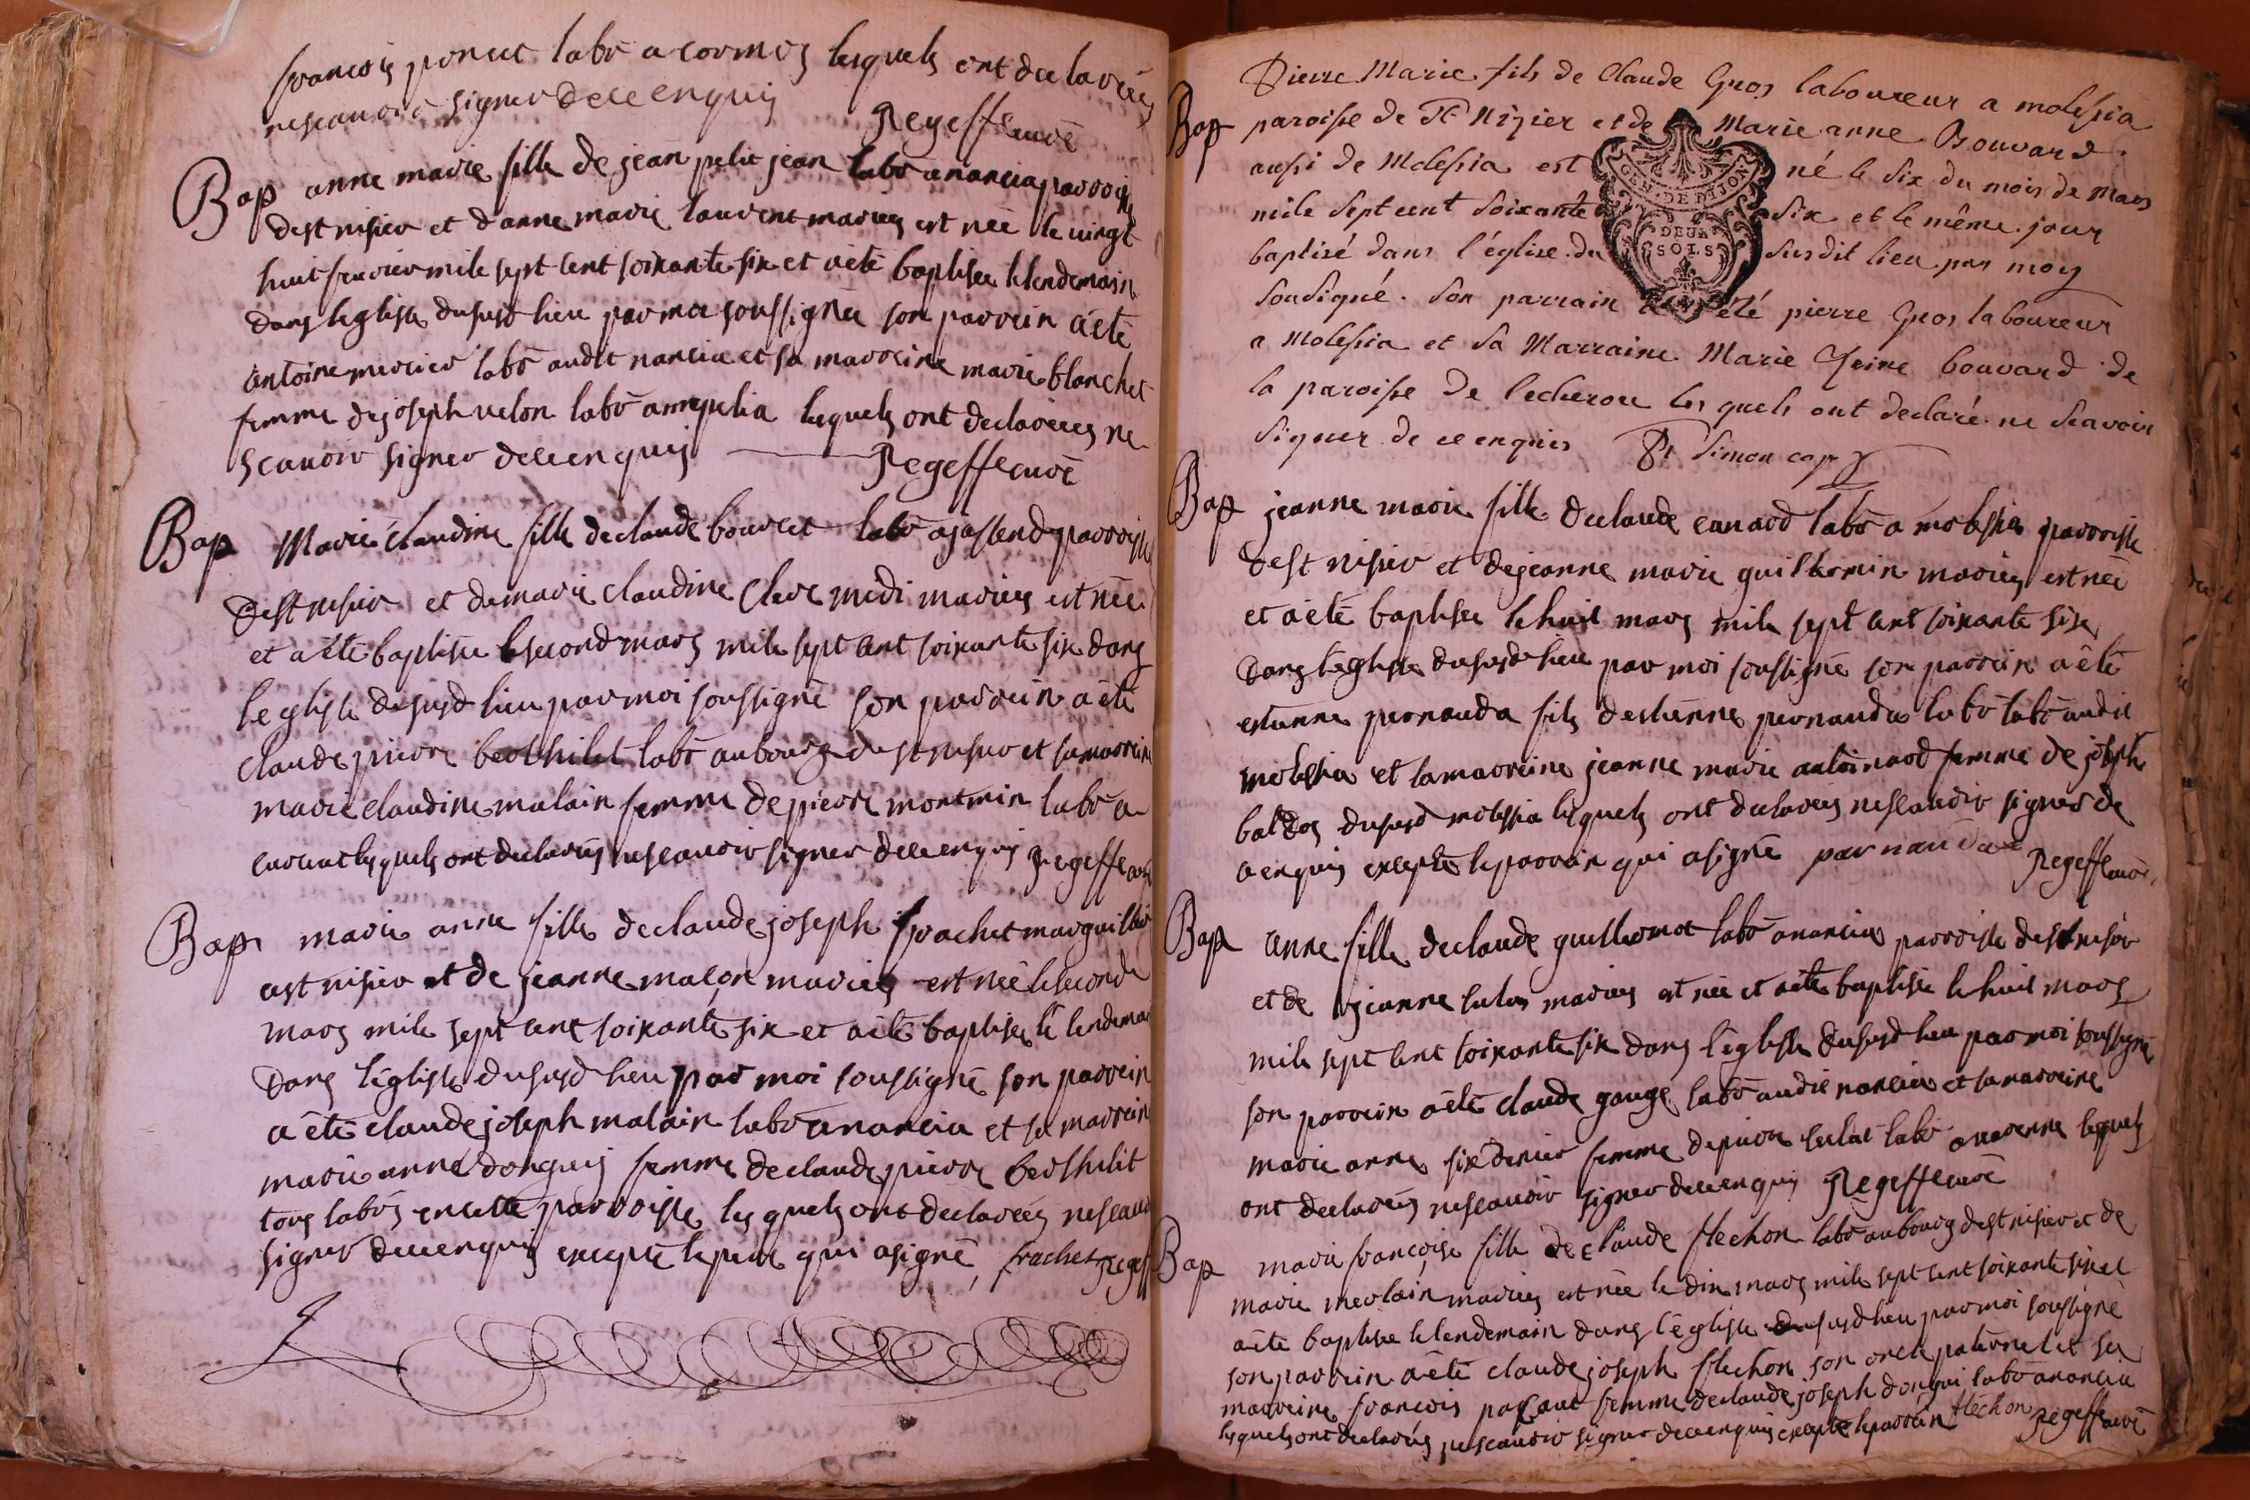 françois poncet labō a cormoz lesquels ont declarées
ne scavoir signer de ce enquis Regeffe curé
Bap anne marie fille de jean petit jean labō a nancia parroisse
de st nisier et d'anne marie laurent mariés est neé le vingt
huit fevrier mile sept cent soixante six et a été baptisée le lendemain
dans leglise du susd lieu par moi soussigné son parrein a été
antoine mercier labō audit nancia et sa marreine marie blanchet
femme de joseph velon labō lesquels ont declarées ne
scavoir signer de ce enquis Regeffe curé
Bap Marie claudine fille de claude bouvret labō parroisse
de st nisier et de marie claudine clere midi mariés est née
et a été baptisée le second mars mile sept cent soixante six dans
leglise du susd lieu par moi soussigné son parrein a été
claude pierre berthilet labō au bourg du st nisier et sa marreine
marie claudine malain femme de pierre montmin labō a
lesquels ont declarées ne scavoir signer de ce enquis Regeffe curé
Bap marie anne fille de claude joseph frachet marguillier
a st nisier et de jeanne maçon mariés est neé le second
mars mile sept cent soixante six et a été baptisée le lendemain
dans l'église du susd lieu par moi soussigné son parrein
a été claude joseph malain labō a nancia et sa marreine
marie anne donguis femme de claude pierre berthilit
tous labōs en cette parroisse lesquels ont declarées ne scavoir
signer de ce enquis excepté le pere qui a signé frachet Regeffe
Pierre Marie fils de Claude Gros laboureur a molissia
Bap paroisse de St Nizier et de Marie anne Bouvard
aussi de Molissia est né le six du mois de Mars
mile sept cent soixante six et le même jour
baptisé dans l'église du susdit lieu par moy
sousigné. son parrain a été pierre Gros laboureur
a Molissia et sa Marraine Marie bouvard de
la paroisse de lecheroux les quels ont declaré ne scavoir
signer de ce enquis Simon cap
GEN. DE DIJON
DEUX
SOLS
Bap jeanne marie fille de claude canard labō a molissia parroisse
de st nisier et de jeanne marie guillermin mariés est neé
et a été baptisée le huit mars mile sept cent soixante six
dans l'eglise du susd lieu par moi soussigné son parrein a été
estienne pernauda fils d'estienne pernauda labō labō audit
molissia et sa marreine jeanne marie antoinard femme de joseph
du susd molissia lesquels ont declarées ne scavoir signer de
ce enquis excepté le parrain qui a signé parnauda Regeffe curé
Bap anne fille de claude guillermot labō a nancia parroisse de st nisier
et de jeanne mariés est neé et a été baptisée le huit mars
mile sept cent soixante six dans l'église du susd lieu par moi soussigné
son parrein a été claude gauge labō audit nancia et sa marreine
marie anne sixdenier femme de pierre labō lesquels
ont declarées ne scavoir signer de ce enquis Regeffe curé
Bap marie françoise fille de claude flechon labō au bourg de st nisier et de
marie merlain mariés est née le dix mars mile sept cent soixante six et
a été baptisée le lendemain dans l'église du susd lieu par moi soussigné
son parrein a été claude joseph flechon son oncle paternel et sa
marreine femme de claude joseph dongui labō a nancia
lesquels ont declarés ne scavoir signer de ce enquis excepté le parrein flechon Regeffe curé